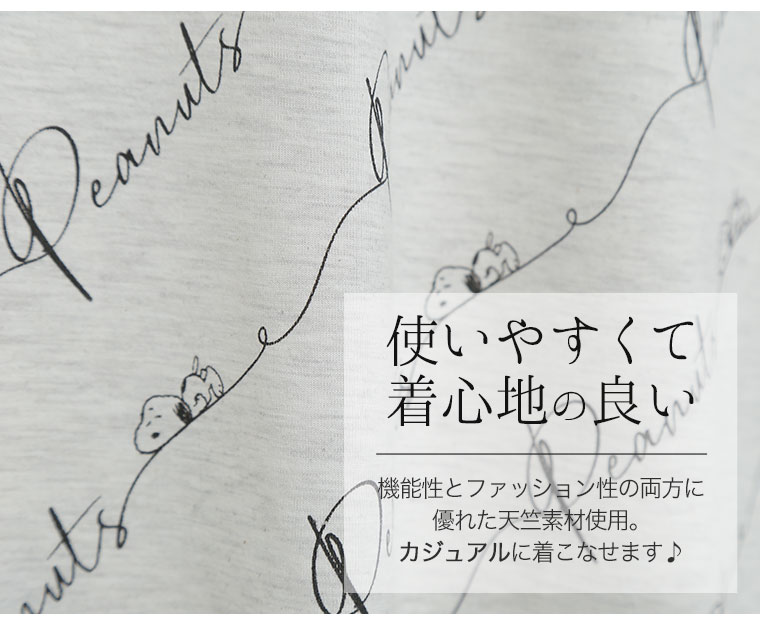 Peanuts
使いやすくて
着心地の良い
機能性とファッション性の両方に
優れた天竺素材使用。
カジュアルに着こなせます♪
Peanuts
nuts